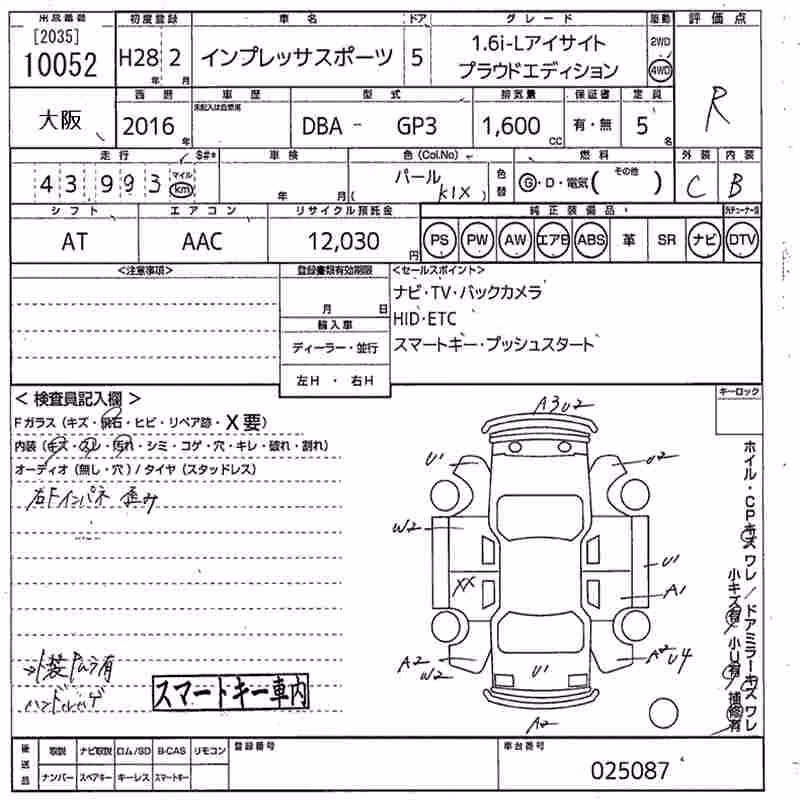 出品番号 初度登録 車名 ドア グレード 駆動 評価点
[2035] 10052 H28 2 年 月 インプレッサスポーツ 5 1.6i-Lアイサイト 2WD R
プラウドエディション 4WD
大阪 西暦 車歴 型式 排気量 保証書 定員
未記入は自家用
2016 年 DBA - GP3 1,600 cc 有・無 5 名
走行 $#* 車検 色(Col.No) 燃料 外装 内装
43993 マイル km 年 月 パール (K1X) 色替 G・D・電気( その他 ) C B
シフト エアコン リサイクル預託金 純正装備品
AT AAC 12,030 円 PS PW AW エアB ABS 革 SR ナビ DTV
<注意事項> 登録書類有効期限 <セールスポイント>
月 日 ナビ・TV・バックカメラ
輸入車 HID・ETC
ディーラー・並行 スマートキー・プッシュスタート
左H ・ 右H
<検査員記入欄> キーロック
Fガラス(キズ・飛石・ヒビ・リペア跡・X要)
内装(キズ・スレ・汚れ・シミ・コゲ・穴・キレ・破れ・割れ)
オーディオ(無し・穴)/タイヤ(スタッドレス)
右Fインパネ 歪み
スマートキー車内
A3U2
U1 U2
W2 U1
XX A1
A2 W2 U1 A2 U4
A2
ホイル・CPキズ ワレ/ドアミラーキズ ワレ
小キズ有 小U有 補修有
後送品 取説 ナビ取説 ロム/SD B-CAS リモコン 登録番号 車台番号
ナンバー スペアキー キーレス スマートキー 025087